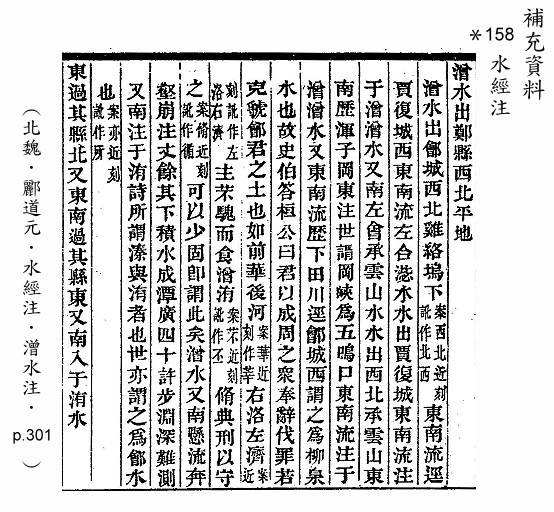 補充資料
*158 水經注
潧水出鄭縣西北平地
潧水出鄶城西北雞絡塢下案西北近刻訛作北西東南流逕
賈復城西東南流左合水水出賈復城東南流注
于潧潧水又南左會承雲山水水出西北承雲山東
南歷渾子岡東注世謂岡峽爲五鳴口東南流注于
潧潧水又東南流歷下田川逕鄶城西謂之爲柳泉
水也故史伯答桓公曰君以成周之衆奉辭伐罪若
克虢鄶君之土也如前華後河案華近刻作莘右洛左濟案近
刻訛作左洛右濟主芣騩而食潧洧案芣近刻訛作丕脩典刑以守
之案脩近刻訛作循可以少固卽謂此矣潧水又南懸流奔
壑崩注丈餘其下積水成潭廣四十許步淵深難測
又南注于洧詩所謂溱與洧者也世亦謂之爲鄶水
也案亦近刻訛作所
東過其縣北又東南過其縣東又南入于洧水
(北魏.酈道元.水經注.潧水注.p.301)